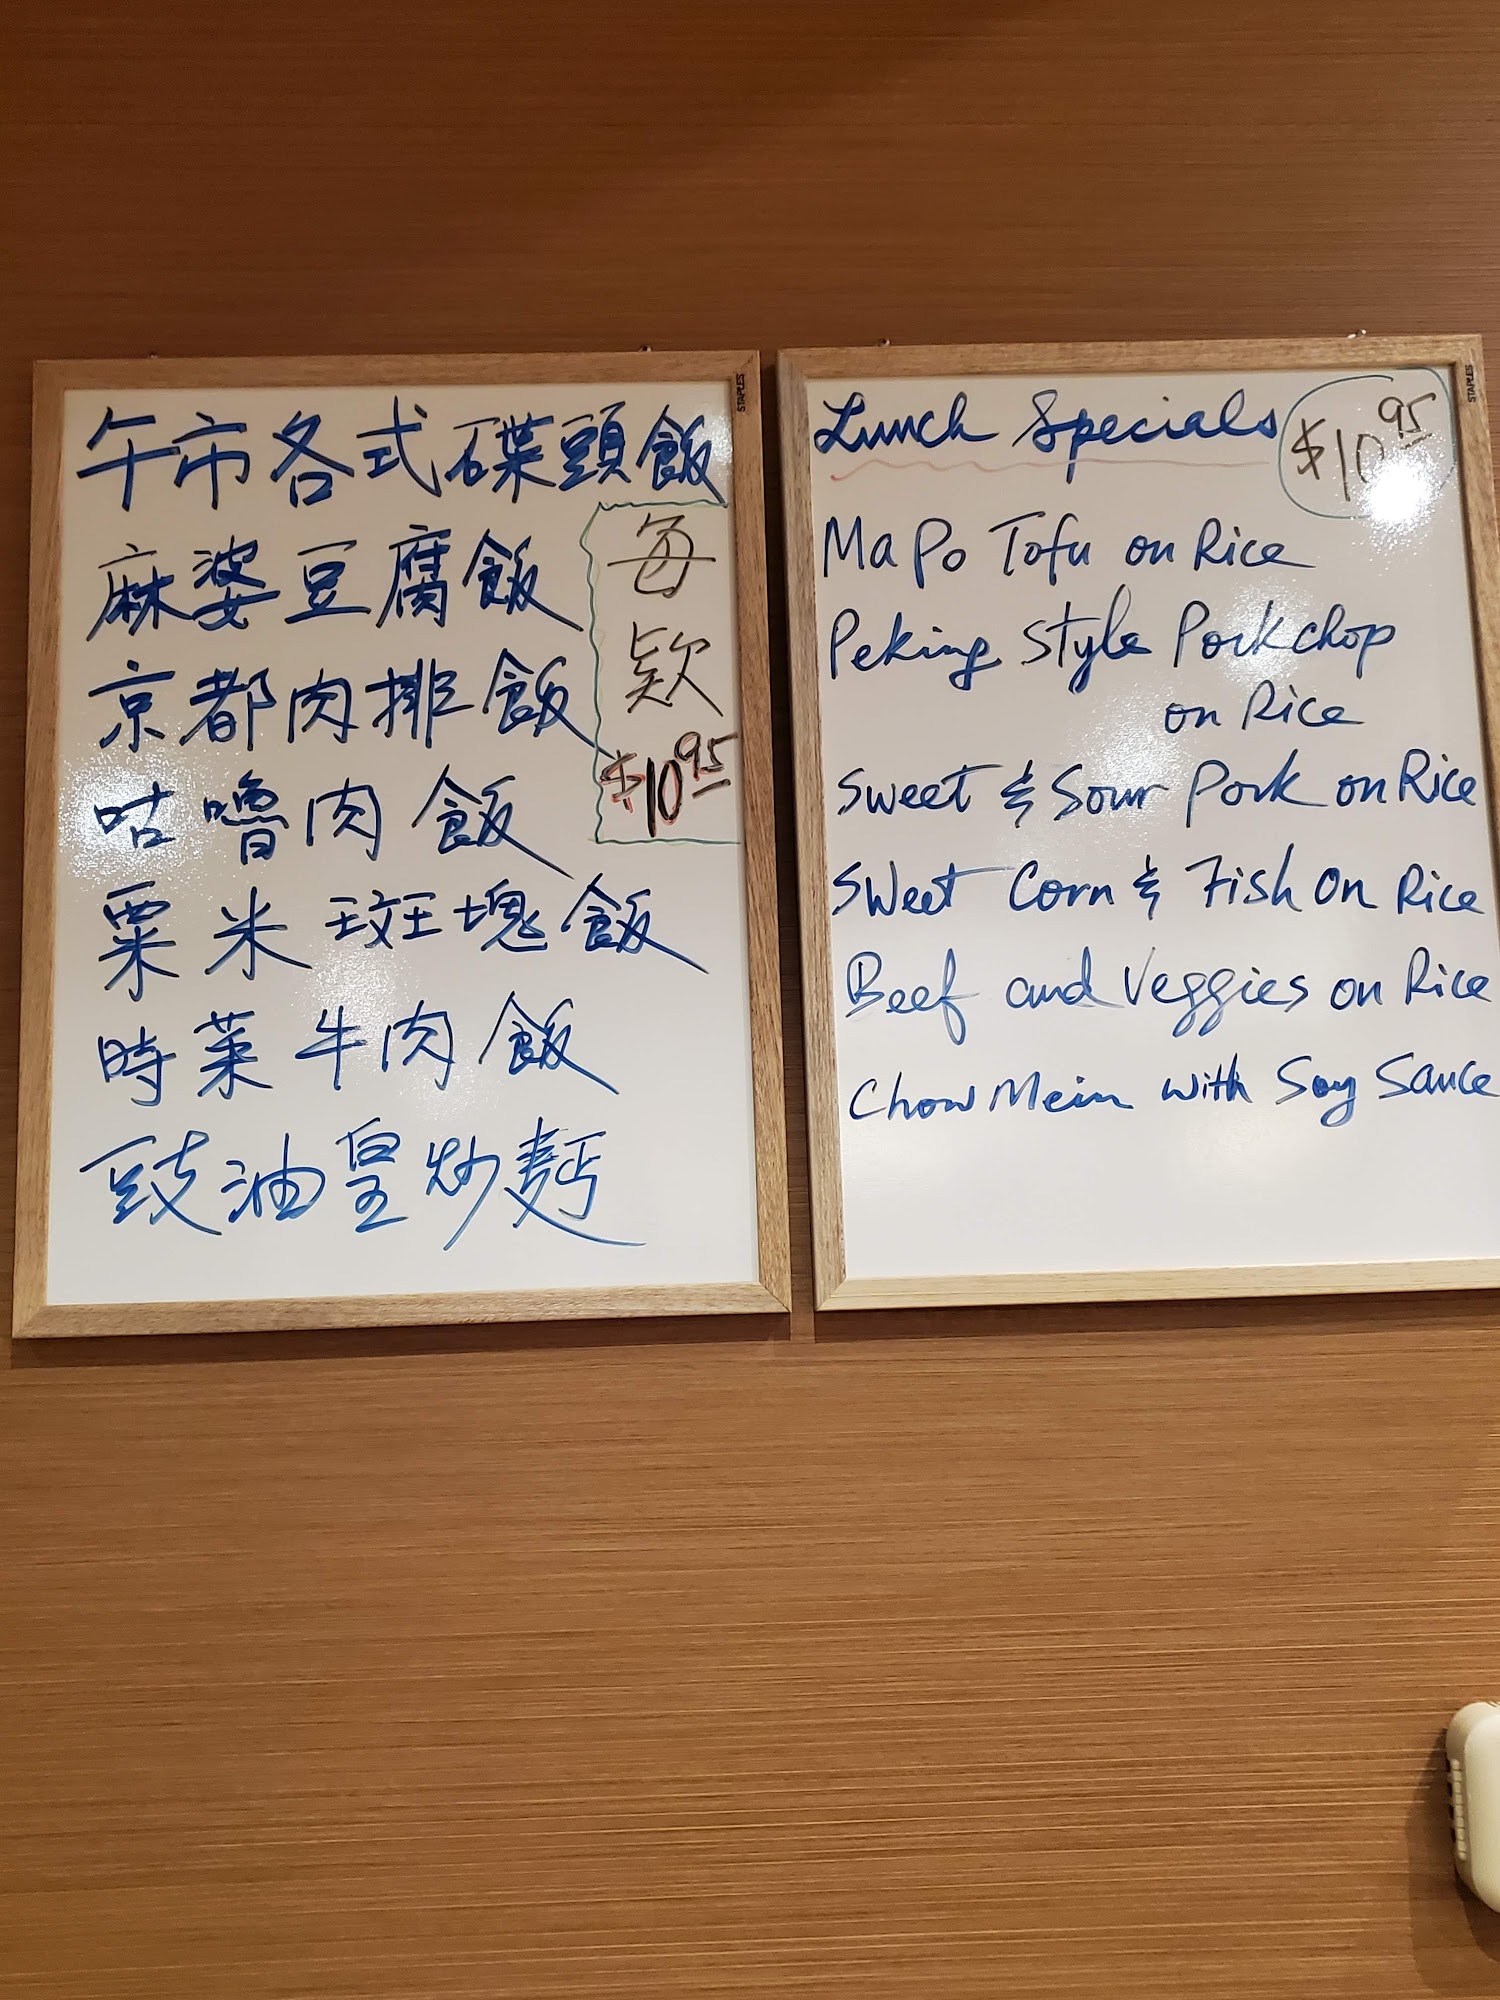 STAPLES
午市各式碟頭飯
麻婆豆腐飯
京都肉排飯
咕嚕肉飯
粟米斑塊飯
時菜牛肉飯
豉油皇炒麵
每
款
$10.95
STAPLES
Lunch Specials
$10.95
Ma Po Tofu on Rice
Peking Style Porkchop
on Rice
Sweet & Sour Pork on Rice
Sweet Corn & Fish On Rice
Beef and Veggies on Rice
Chow Mein with Soy Sauce